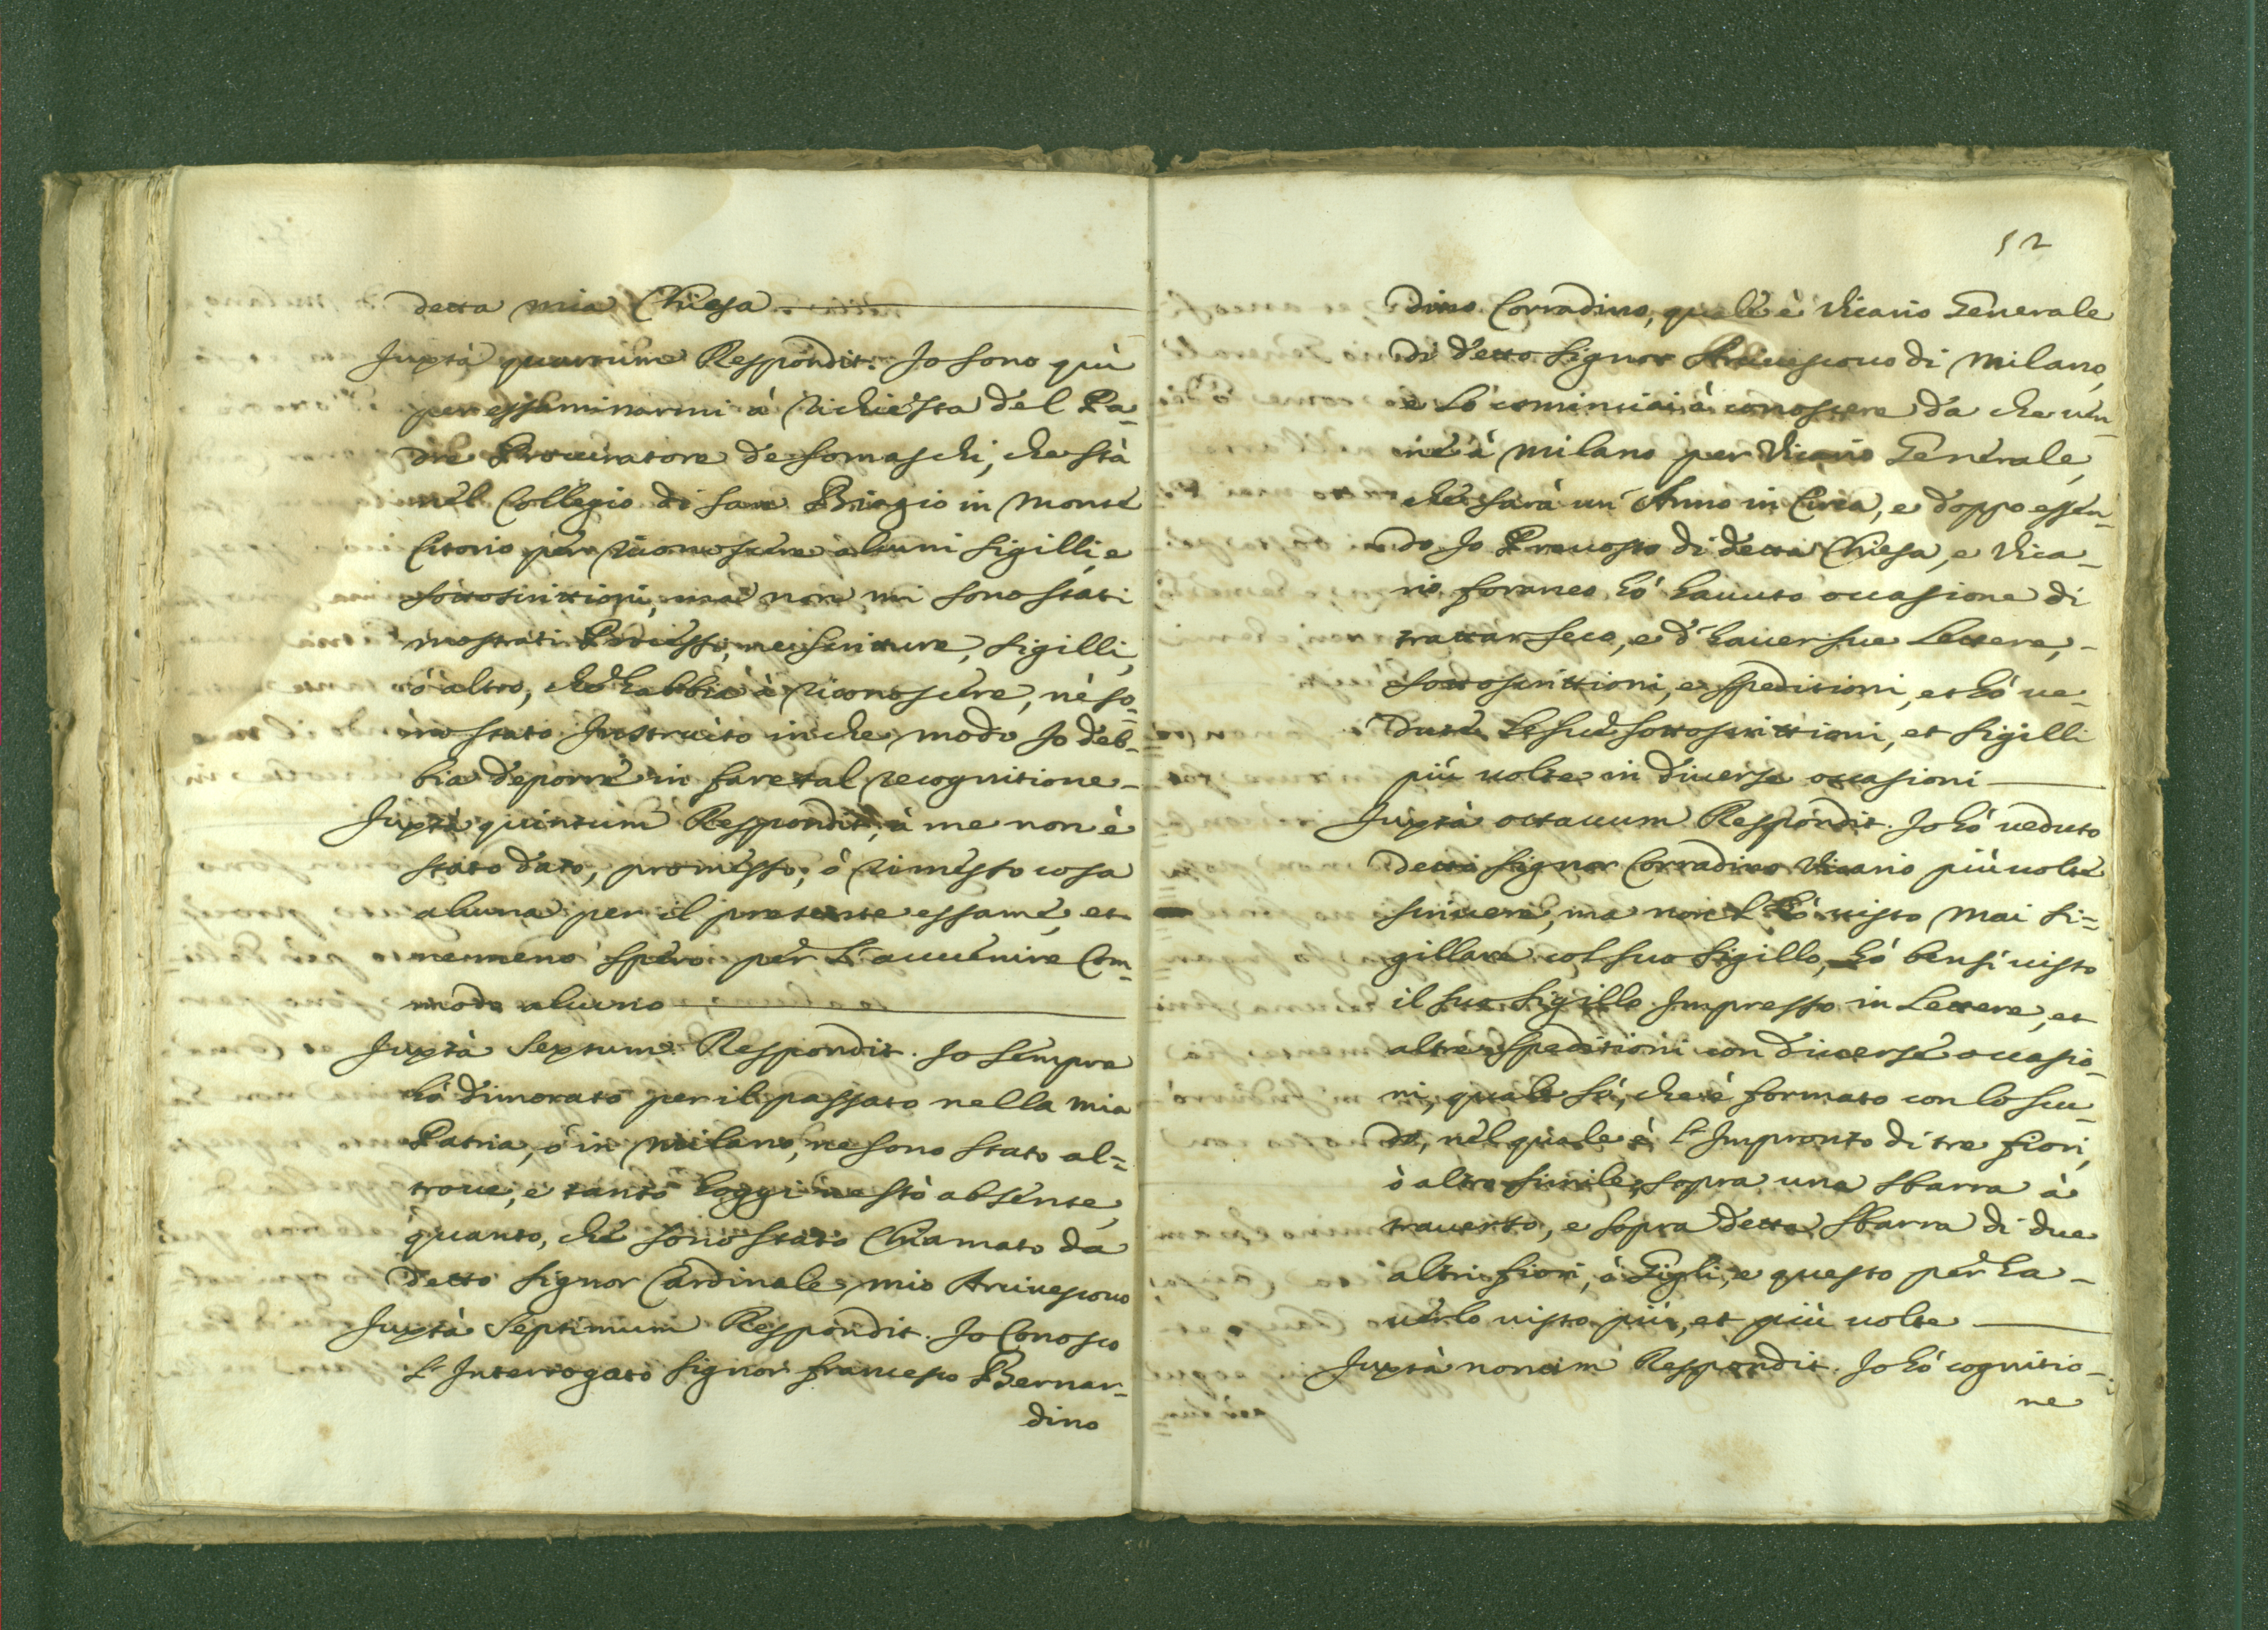 detta mia Chiesa
Juxtà quartum Respondit. Jo sono quì
per essaminarmi à richiesta del Pa-
dre Procuratore de somaschi, che stà
nel Collegio di san Biagio in Monte
Citorio per riconoscere alcuni sigilli, e
sottoscrittioni, ma non mi sono stati
mostrati Processi, ne scritture, sigilli,
ò altro, che habbia à riconoscere, nè so-
no stato Instruito in che modo Jo deb-
bia deporre in fare tal recognitione-
Juxtà quintum Respondit, à me non è
stato dato, promesso, ò rimesso cosa
alcuna per il presente essame, et
nemmeno spero per L'auuenire Com-
modo alcuno
Juxtà Sextum Respondit. Jo sempre
hò dimorato per il passato nella mia
Patria, ò in Milano, ne sono stato al=
troue, e tanto hoggi ne stò absente,
quanto, che sono stato Chiamato da
detto Signor Cardinale, mio Arciuescouo
Juxtà Septimum Respondit. Jo Conosco
L'Interrogato Signor francesco Bernar=
dino
52
dino Corradino, quale è Vicario Generale
di detto Signor Arciuescouo di Milano,
e Lò cominciai à conoscere da che uen-
ne à Milano per Vicario Generale,
che sarà un' Anno in Circa, e doppo essen-
do Jo Preuosto di detta Chiesa, e Vica-
rio foraneo hò hauuto occasione di
trattar seco, e d'hauer sue Lettere, -
sottoscrittioni, e speditioni, et hò ue-
dute Le sue sottoscrittioni, et sigilli
più uolte in diuerse occasioni
Juxtà octauum Respondit. Jo hò ueduto
detto Signor Corradino Vicario più uolte
scriuere, ma non L'hò uisto mai si=
gillare col suo Sigillo, hò bensì uisto
il suo sigillo Impresso in Lettere, et
altre speditioni con diuerse occasio-
ni, quale sò, che è formato con lo scu-
do, nel quale è L'Impronto di tre fiori,
ò altro simile, sopra una sbarra à
trauerso, e sopra detta sbarra di due
altri fiori, ò Gigli, e questo per ha-
uerlo uisto più, et più uolte
Juxtà nonum Respondit. Jo hò cognitio-
ne